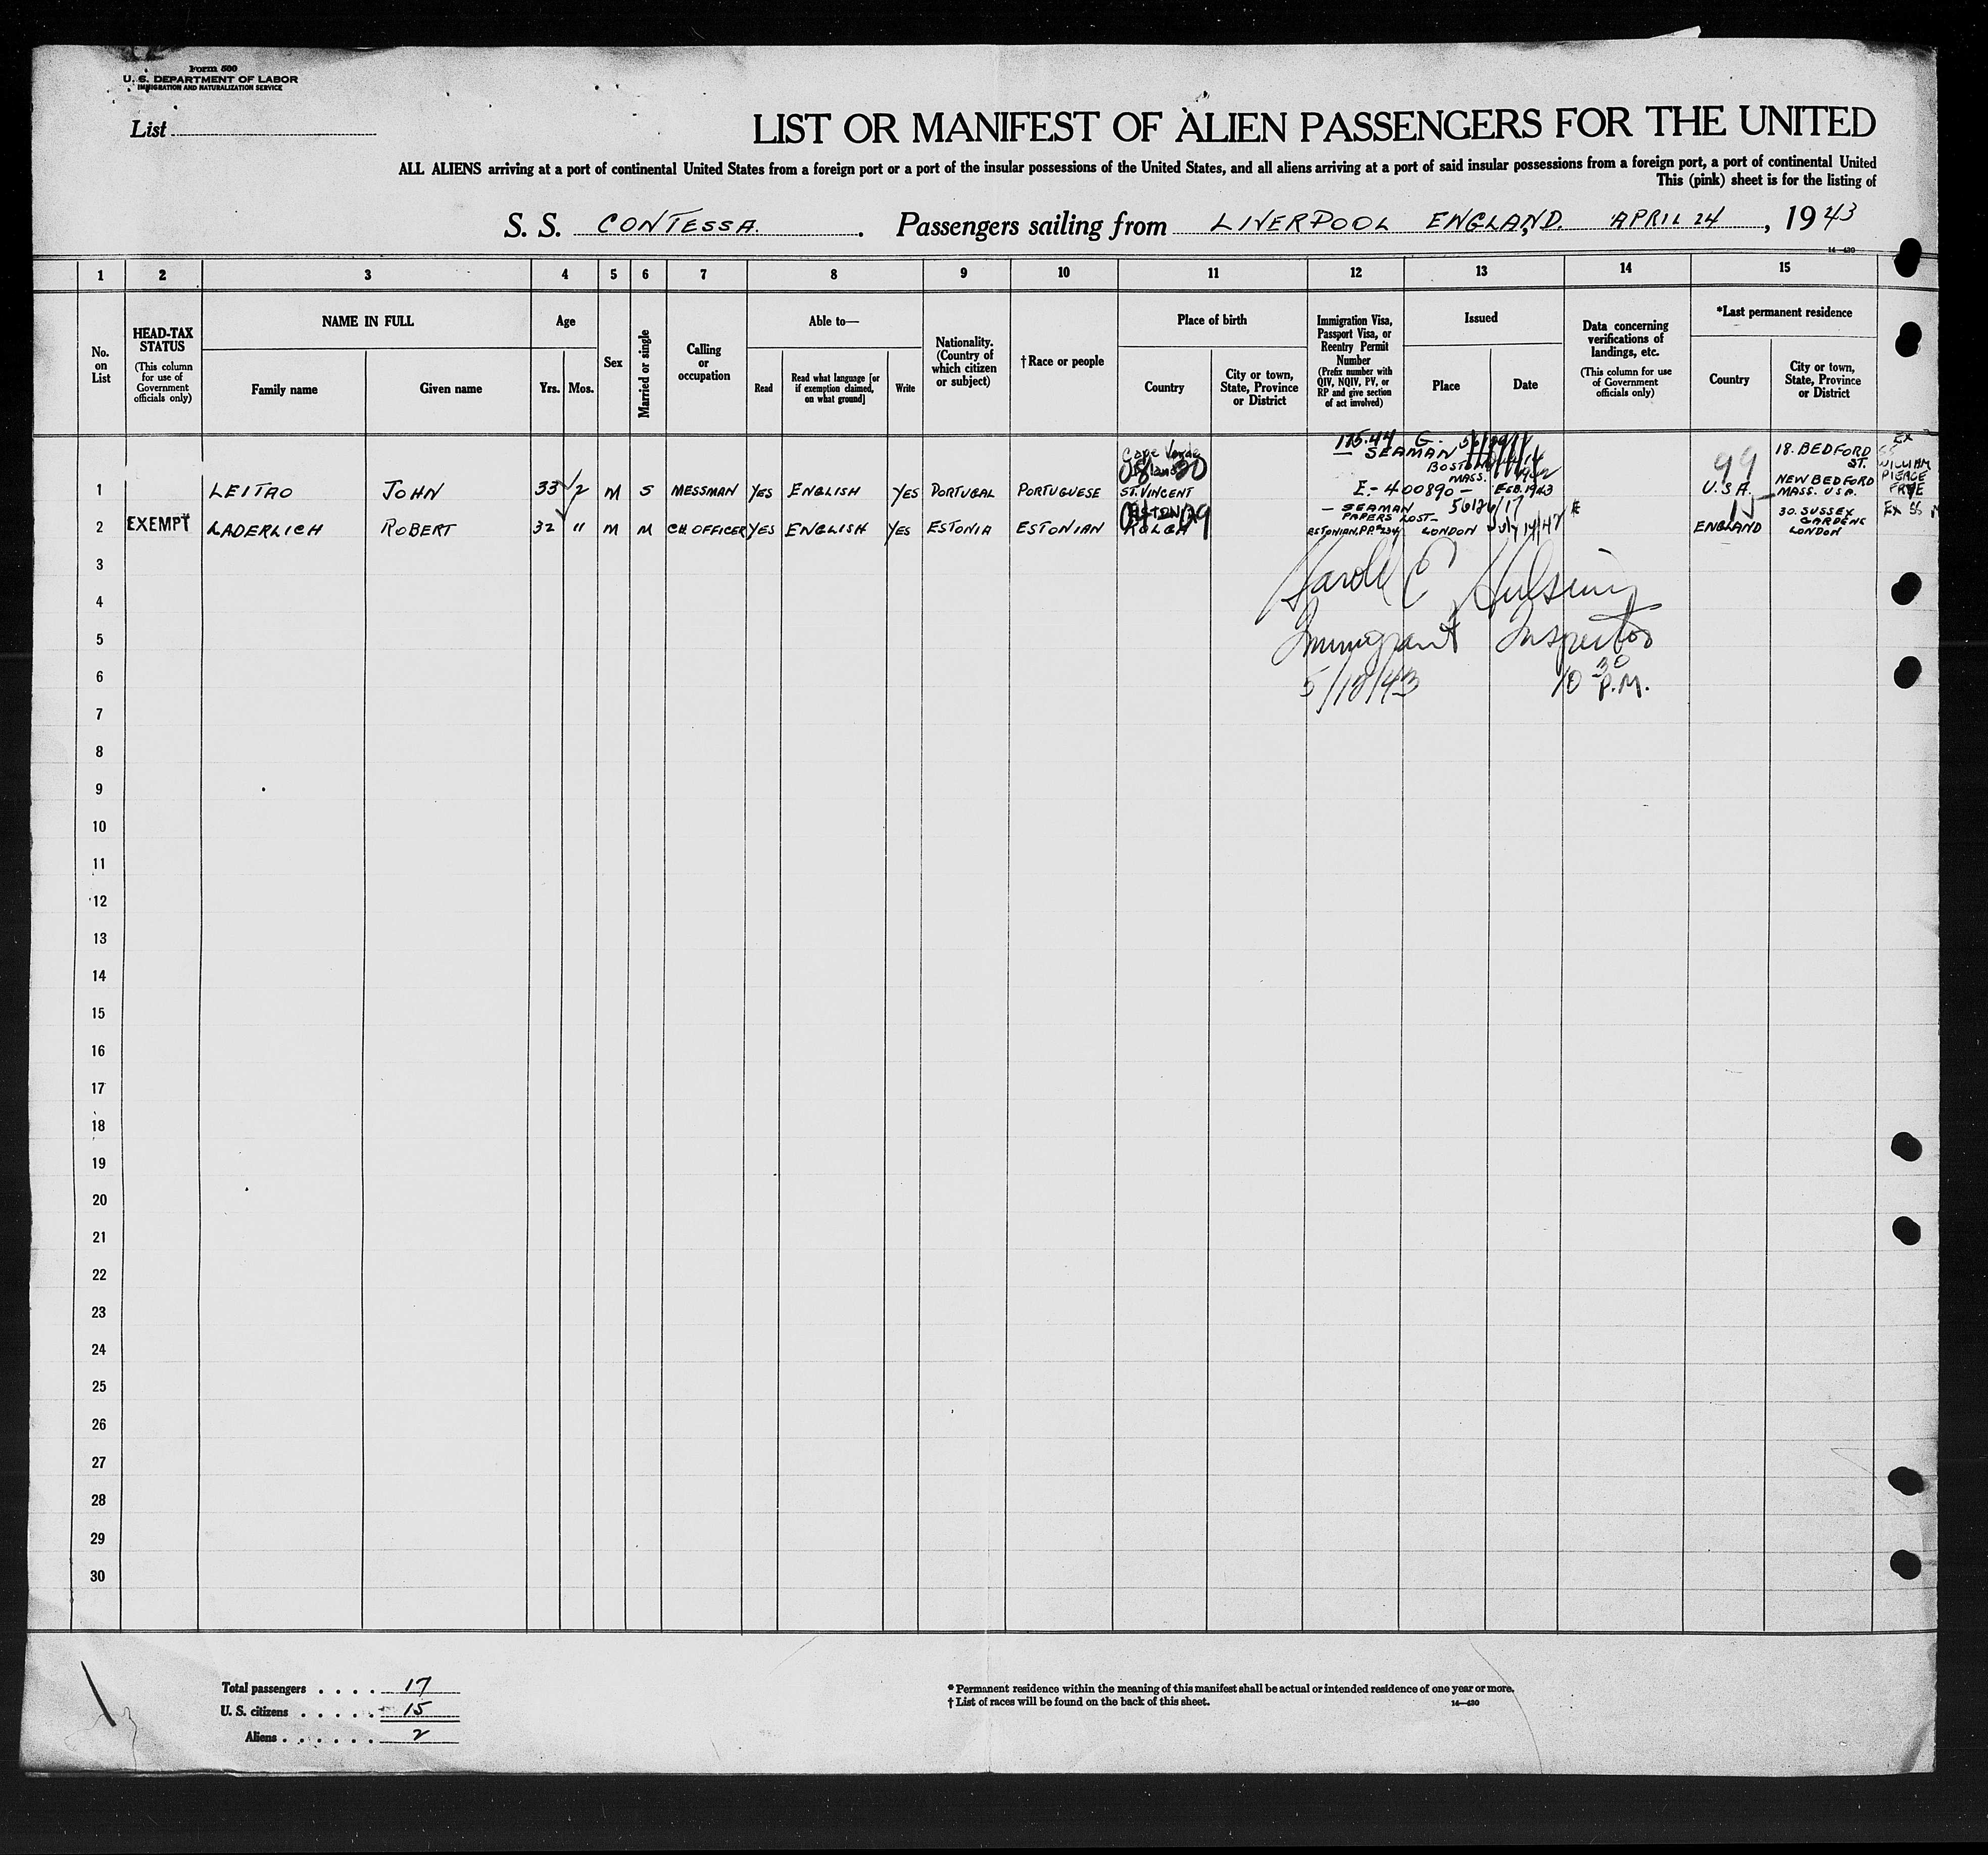 Form 500
U. S. DEPARTMENT OF LABOR
IMMIGRATION AND NATURALIZATION SERVICE
List
LIST OR MANIFEST OF ALIEN PASSENGERS FOR THE UNITED
ALL ALIENS arriving at a port of continental United States from a foreign port or a port of the insular possessions of the United States, and all aliens arriving at a port of said insular possessions from a foreign port, a port of continental United
This (pink) sheet is for the listing of
S. S. CONTESSA. Passengers sailing from LIVERPOOL ENGLAND. APRIL 24, 1943
14—430
1 2 3 4 5 6 7 8 9 10 11 12 13 14 15
No. on List
HEAD-TAX STATUS (This column for use of Government officials only)
NAME IN FULL
Family name Given name
Age
Yrs. Mos.
Sex
Married or single
Calling or occupation
Able to—
Read Read what language [or if exemption claimed, on what ground] Write
Nationality. (Country of which citizen or subject)
†Race or people
Place of birth
Country City or town, State, Province or District
Immigration Visa, Passport Visa, or Reentry Permit Number (Prefix number with QIV, NQIV, PV, or RP and give section of act involved)
Issued
Place Date
Data concerning verifications of landings, etc. (This column for use of Government officials only)
*Last permanent residence
Country City or town, State, Province or District
1 LEITAO JOHN 33 2 M S MESSMAN YES ENGLISH YES PORTUGAL PORTUGUESE Cape Verde Islands ST. VINCENT SEAMAN BOSTON MASS. E-400890 FEB. 1943 99 U.S.A. 18. BEDFORD ST. NEW BEDFORD MASS. U.S.A. EX SS WILLIAM PIERCE FRYE
2 EXEMPT LADERLICH ROBERT 32 11 M M CH OFFICER YES ENGLISH YES ESTONIA ESTONIAN ESTONIA SEAMAN PAPERS LOST- ESTONIAN. PP. LONDON ENGLAND 30. SUSSEX GARDENS LONDON EX SS
3
Harold E
4
Immigrant Inspector
5
5/10/43 10 30 P.M.
6
7
8
9
10
11
12
13
14
15
16
17
18
19
20
21
22
23
24
25
26
27
28
29
30
Total passengers . . . . 17
U. S. citizens . . . . . 15
Aliens . . . . . . 2
* Permanent residence within the meaning of this manifest shall be actual or intended residence of one year or more.
† List of races will be found on the back of this sheet.
14—430